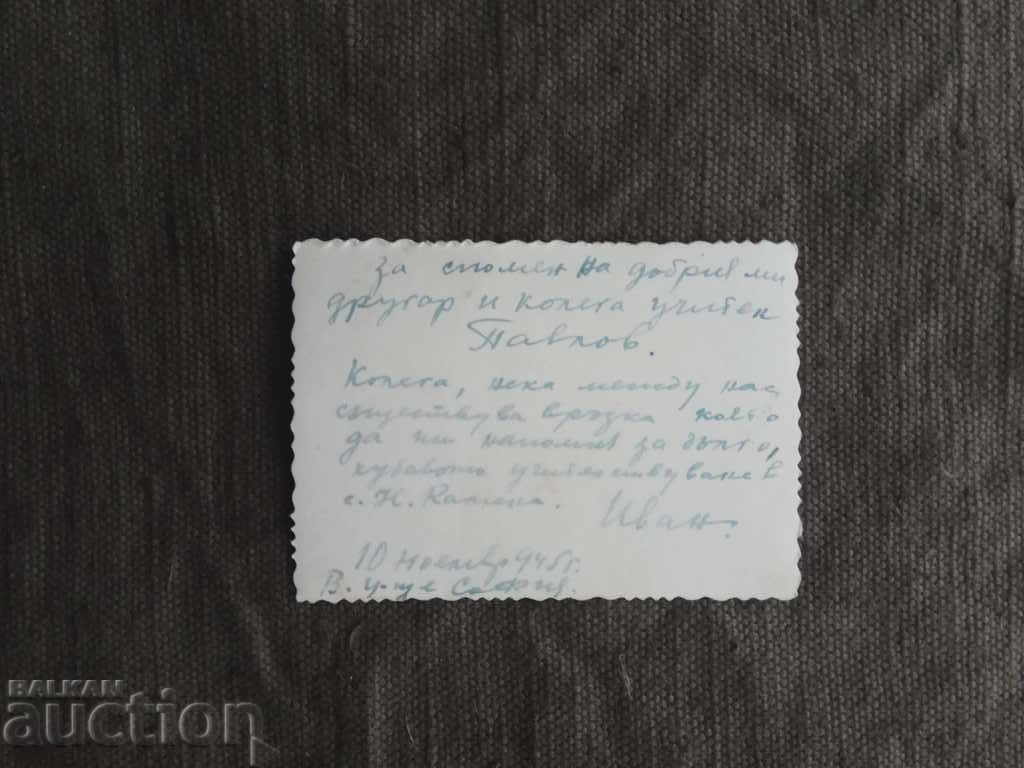 За спомен на добрия ми
другар и колега учител
Павлов.
Колега, нека между нас
съществува връзка която
да ни напомня за
хубавото учителствуване в
с. К.
Иван.
10 Ноемвр 945 г.
В. у-ще София.
BALKAN
auction